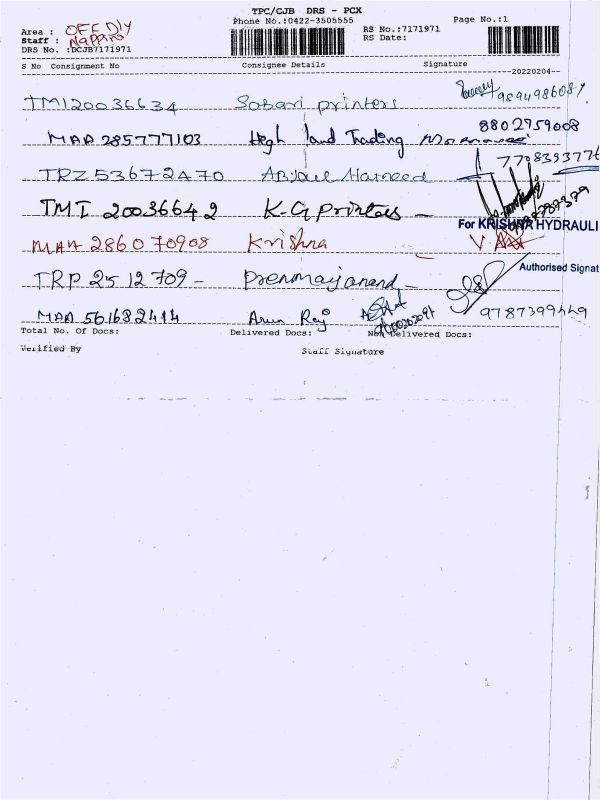 TPC/CJB DRS - PCX
Phone No.:0422-3505555
Page No.:1
Area : OFF Dly
RS No.:7171971
Staff :
RS Date:
DRS No. :DCJB7171971
S No Consignment No Consignee Details Signature
20220204
TMI20036634 Sabari printers
MAA 285777103 High land Trading 8802959008
TRZ53672470 Abdul Hameed 7708393776
TMI 20036642 K.G printers -
For KRISHNA HYDRAULI
MAA 286070908 Krishna
Authorised Signat
TRP 2512709 - Premmaj anand -
9787399449
MAA 561682414 Arun Raj
Total No. Of Docs: Delivered Docs: Non Delivered Docs:
Verified By Staff Signature